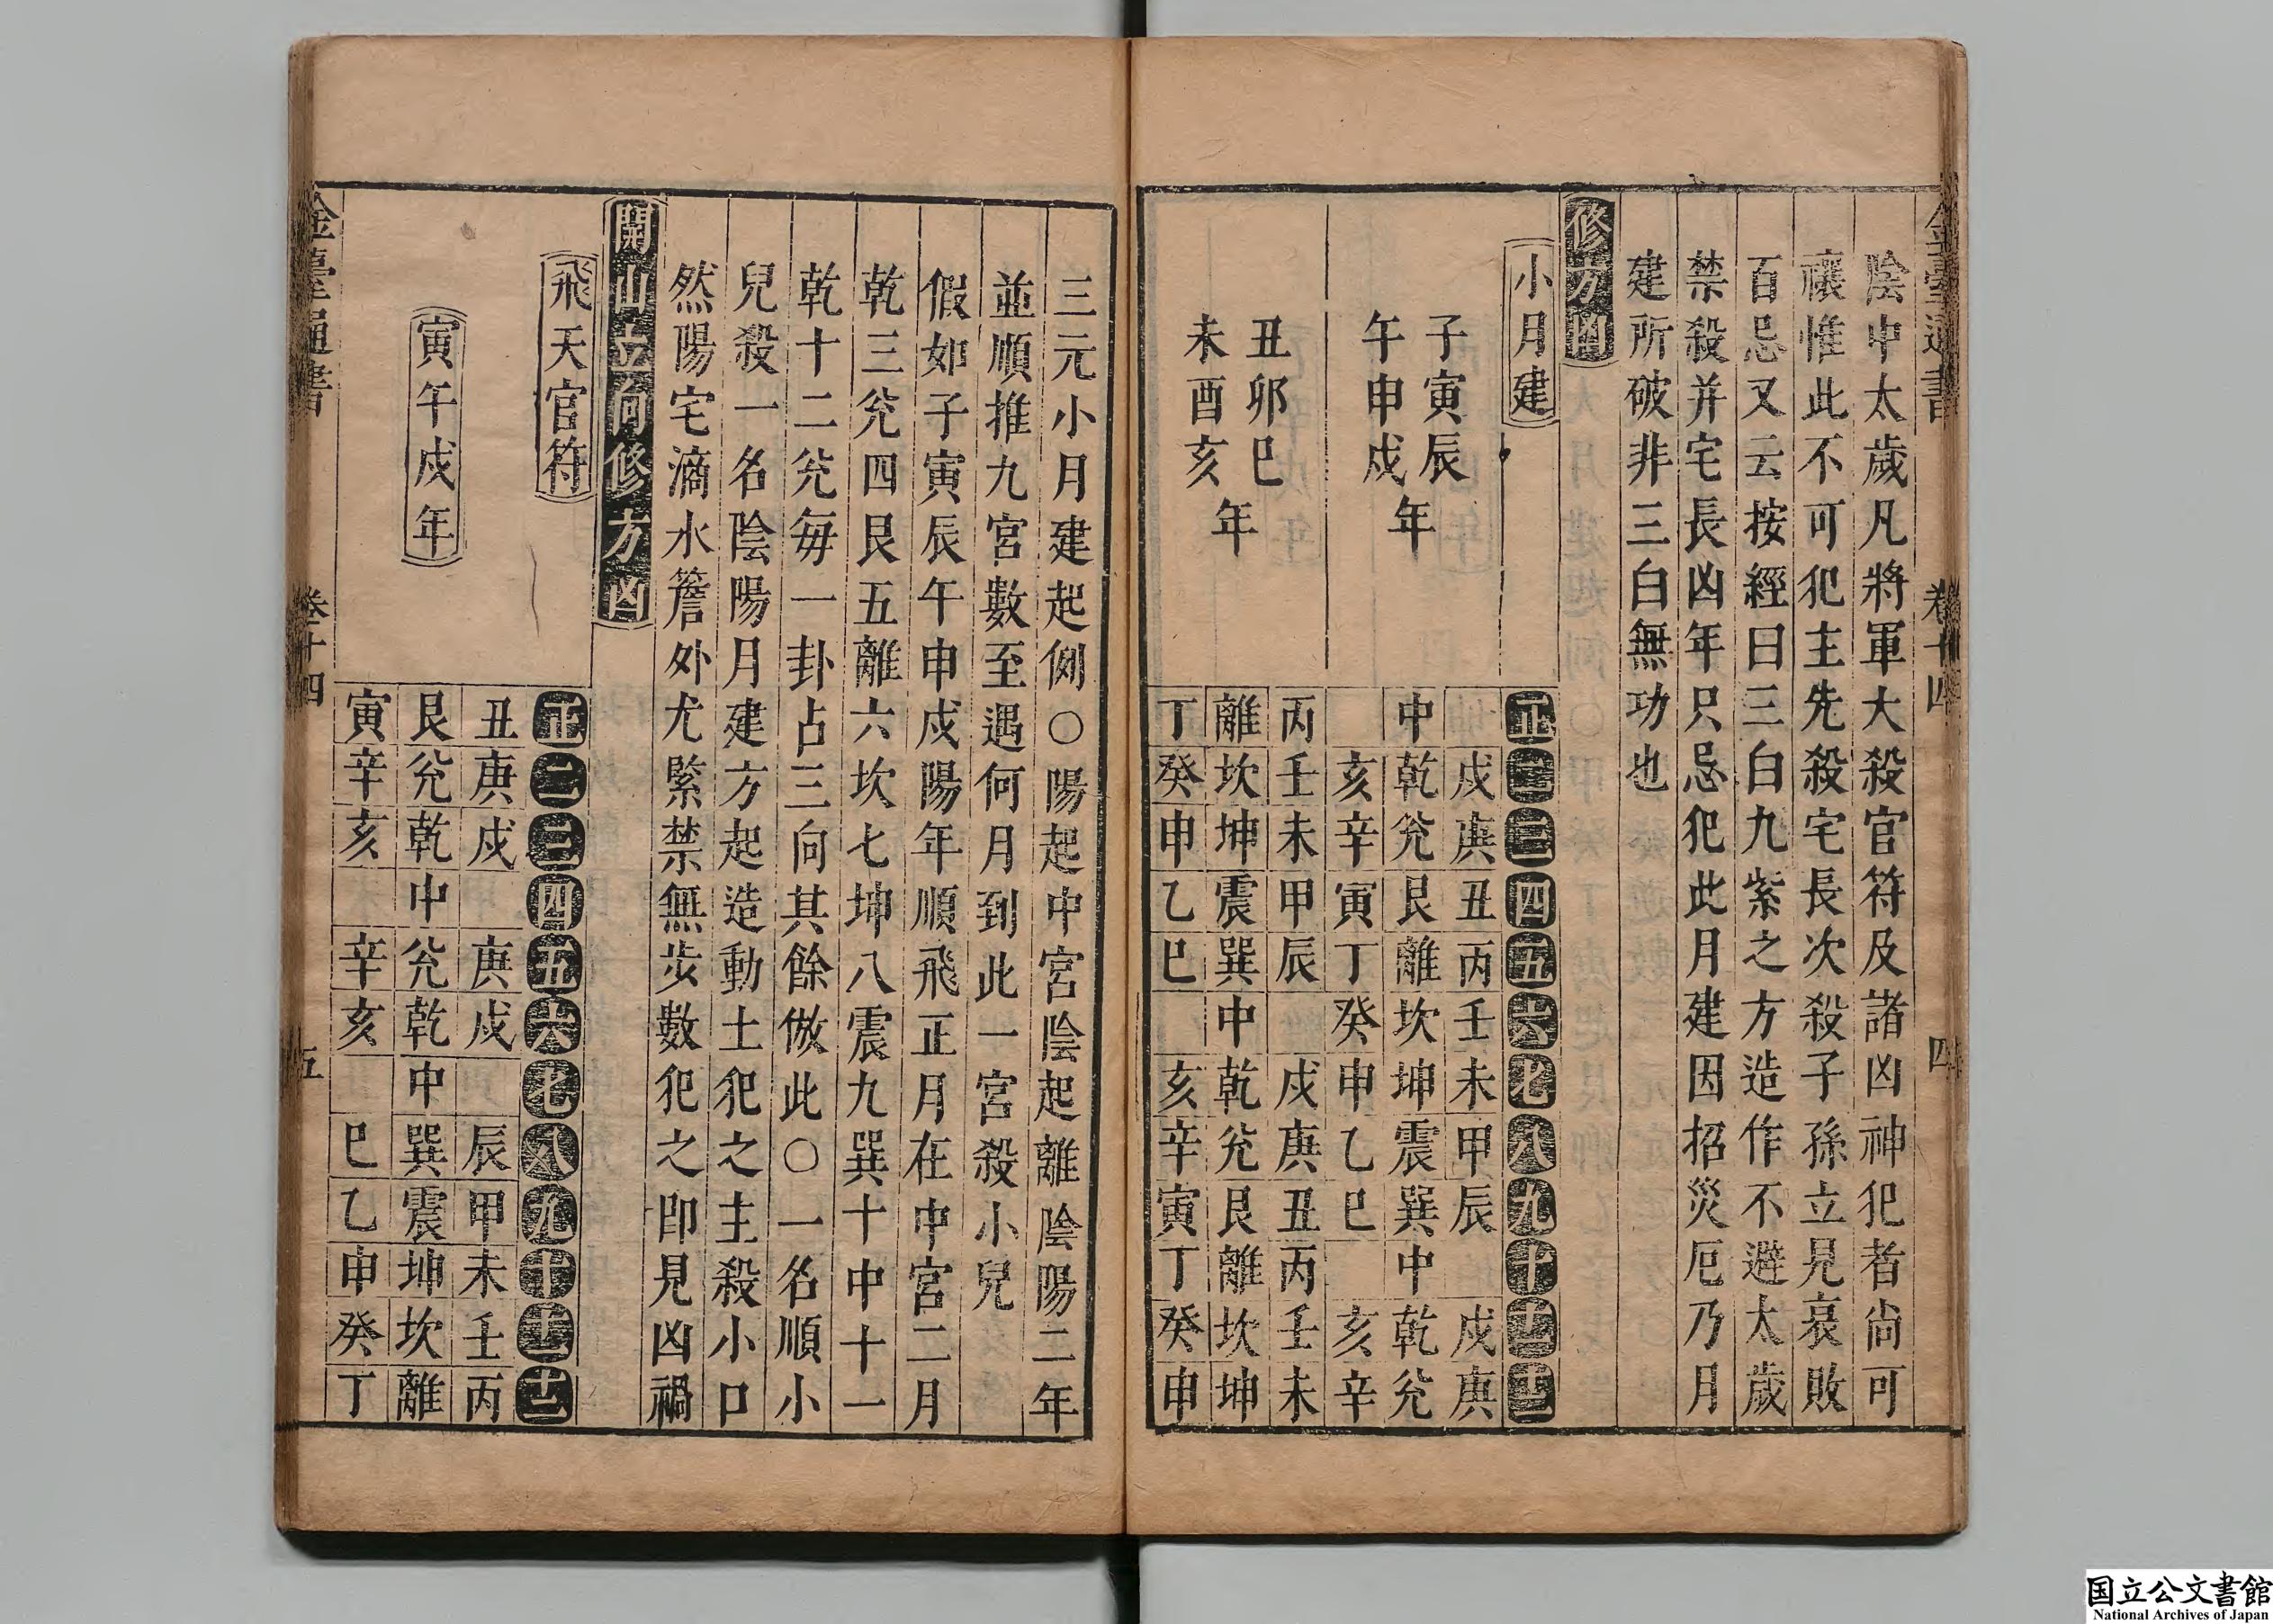 金臺通書 卷十四 四
陰中太歲凡將軍大殺官符及諸凶神犯者尙可
禳惟此不可犯主先殺宅長次殺子孫立見哀敗
百忌又云按經曰三白九紫之方造作不避太歲
禁殺并宅長凶年只忌犯此月建因招災厄乃月
建所破非三白無功也
修方凶
小月建
正二三四五六七八九十十一十二
子寅辰午申戌年
戌庚丑丙壬未甲辰戌庚
中乾兊艮離坎坤震巽中乾兊
亥辛寅丁癸申乙巳亥辛
丑卯巳未酉亥年
丙壬未甲辰戌庚丑丙壬未
離坎坤震巽中乾兊艮離坎坤
丁癸申乙巳亥辛寅丁癸申
三元小月建起例○陽起中宮陰起離陰陽二年
並順推九宮數至遇何月到此一宮殺小兒
假如子寅辰午申戌陽年順飛正月在中宮二月
乾三兊四艮五離六坎七坤八震九巽十中十一
乾十二兊每一卦占三向其餘倣此○一名順小
兒殺一名陰陽月建方起造動土犯之主殺小口
然陽宅滴水簷外尤緊禁無步數犯之卽見凶禍
開山立向修方凶
飛天官符
正二三四五六七八九十十一十二
寅午戌年
丑庚戌庚戌辰甲未壬丙
艮兊乾中兊乾中巽震坤坎離
寅辛亥辛亥巳乙申癸丁
金臺通書 卷十四 五
国立公文書館
National Archives of Japan